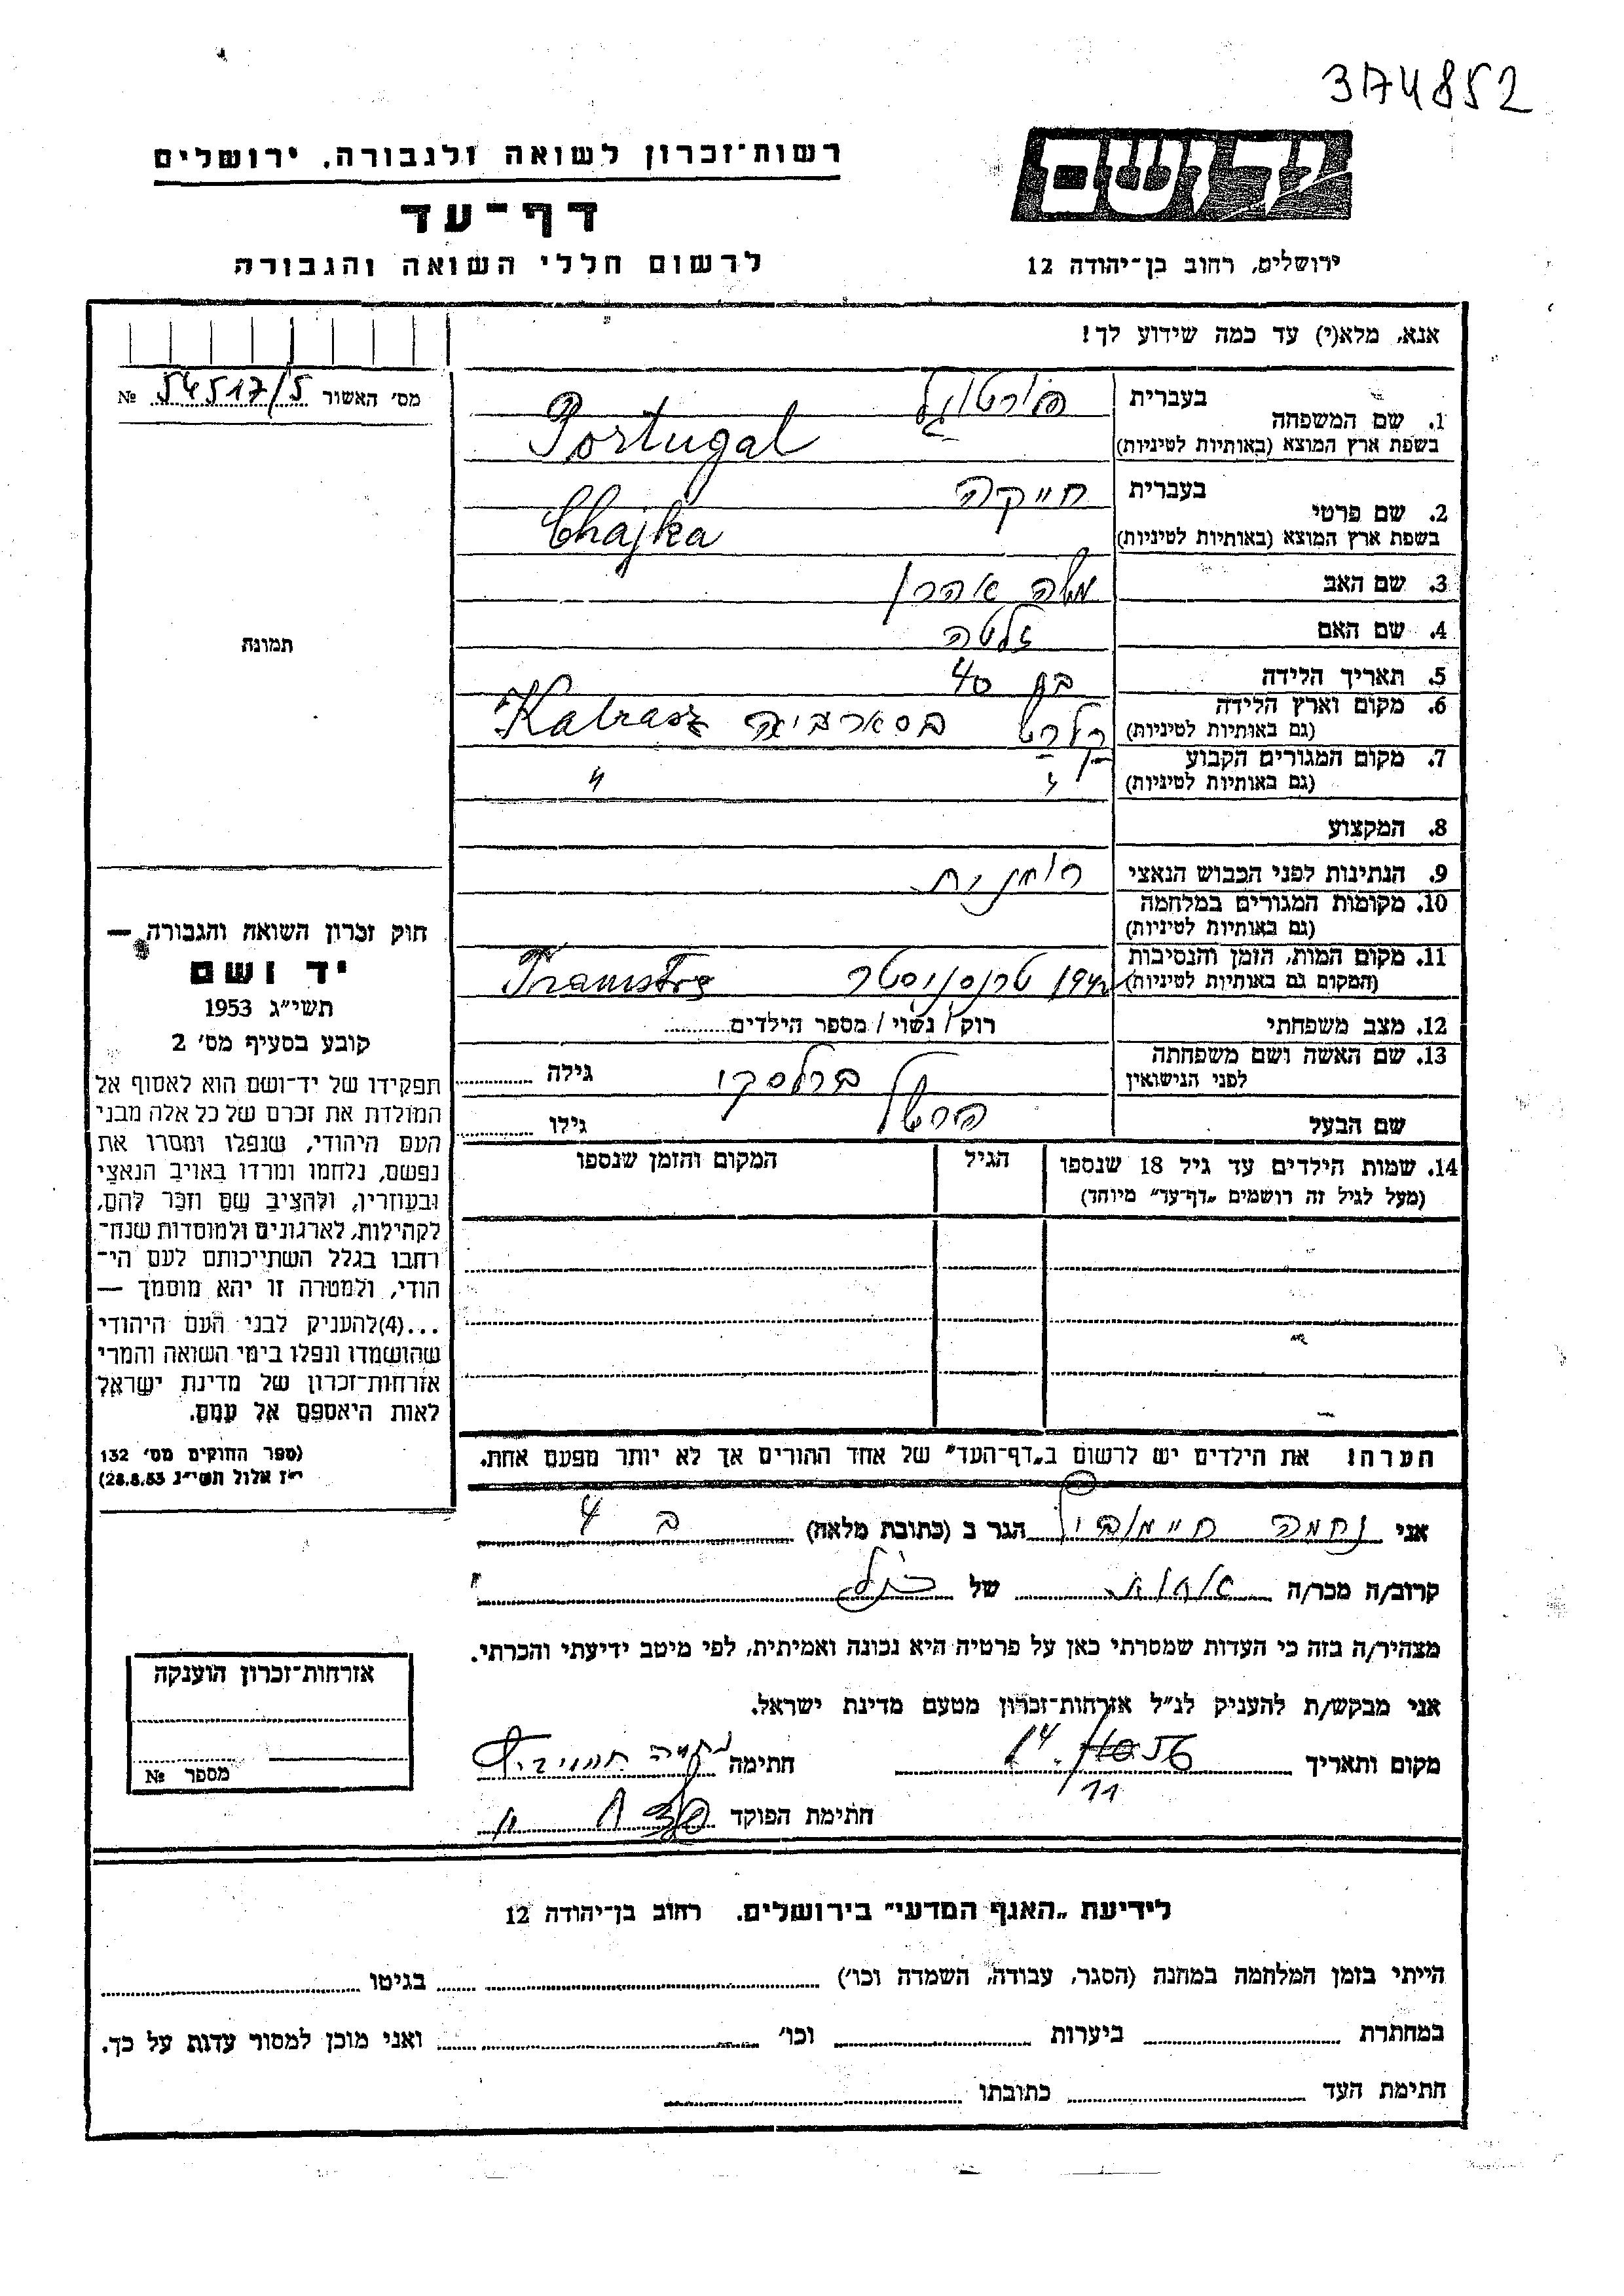 374852
רשות־זכרון לשואה ולגבורה, ירושלים
דף־עד
לרשום חללי השואה והגבורה
ידושם
ירושלים, רחוב בן־יהודה 12
אנא, מלא(י) עד כמה שידוע לך!
מס' האשור 54517/5 №
1. שם המשפחה
בעברית פורטוגל
בשפת ארץ המוצא (באותיות לטיניות) Portugal
2. שם פרטי
בעברית חייקה
בשפת ארץ המוצא (באותיות לטיניות) Chajka
3. שם האב משה אהרן
4. שם האם זלטה
5. תאריך הלידה בת 40
6. מקום וארץ הלידה
(גם באותיות לטיניות) קלרש בסארביה Kalrasz
7. מקום המגורים הקבוע
(גם באותיות לטיניות) " "
8. המקצוע
9. הנתינות לפני הכבוש הנאצי רומנית
10. מקומות המגורים במלחמה
(גם באותיות לטיניות)
11. מקום המות, הזמן והנסיבות
(המקום גם באותיות לטיניות) טרנסניסטר
12. מצב משפחתי רוק / נשוי / מספר הילדים
13. שם האשה ושם משפחתה
לפני הנישואין גילה
שם הבעל גילו
14. שמות הילדים עד גיל 18 שנספו
(מעל לגיל זה רושמים „דף־עד" מיוחד)
הגיל
המקום והזמן שנספו
הערה: את הילדים יש לרשום ב„דף־העד" של אחד ההורים אך לא יותר מפעם אחת.
תמונה
חוק זכרון השואה והגבורה —
יד ושם
תשי״ג 1953
קובע בסעיף מס' 2
תפקידו של יד־ושם הוא לאסוף אל
המולדת את זכרם של כל אלה מבני
העם היהודי, שנפלו ומסרו את
נפשם, נלחמו ומרדו באויב הנאצי
ובעוזריו, ולהציב שם וזכר להם,
לקהילות, לארגונים ולמוסדות שנח־
רחבו בגלל השתייכותם לעם הי־
הודי, ולמטרה זו יהא מוסמך —
...(4)להעניק לבני העם היהודי
שהושמדו ונפלו בימי השואה והמרי
אזרחות־זכרון של מדינת ישראל
לאות היאספם אל עמם.
(ספר החוקים מס' 132
י״ז אלול תשי״ג 28.8.53)
אני נחמה הגר ב (כתובת מלאה)
קרוב/ה מכר/ה אחות של הנ״ל
מצהיר/ה בזה כי העדות שמסרתי כאן על פרטיה היא נכונה ואמיתית, לפי מיטב ידיעתי והכרתי.
אני מבקש/ת להעניק לנ״ל אזרחות־זכרון מטעם מדינת ישראל.
מקום ותאריך 14. 56 11 חתימה נחמה
חתימת הפוקד
אזרחות־זכרון הוענקה
מספר №
לידיעת „האגף המדעי" בירושלים. רחוב בן־יהודה 12
הייתי בזמן המלחמה במחנה (הסגר, עבודה, השמדה וכו') בגיטו
במחתרת ביערות וכו' ואני מוכן למסור עדות על כך.
חתימת העד כתובתו